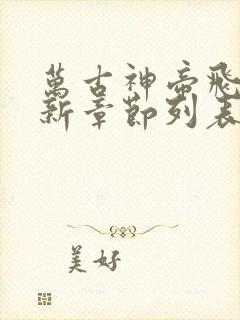 萬古神帝飛
新章節列表
美好